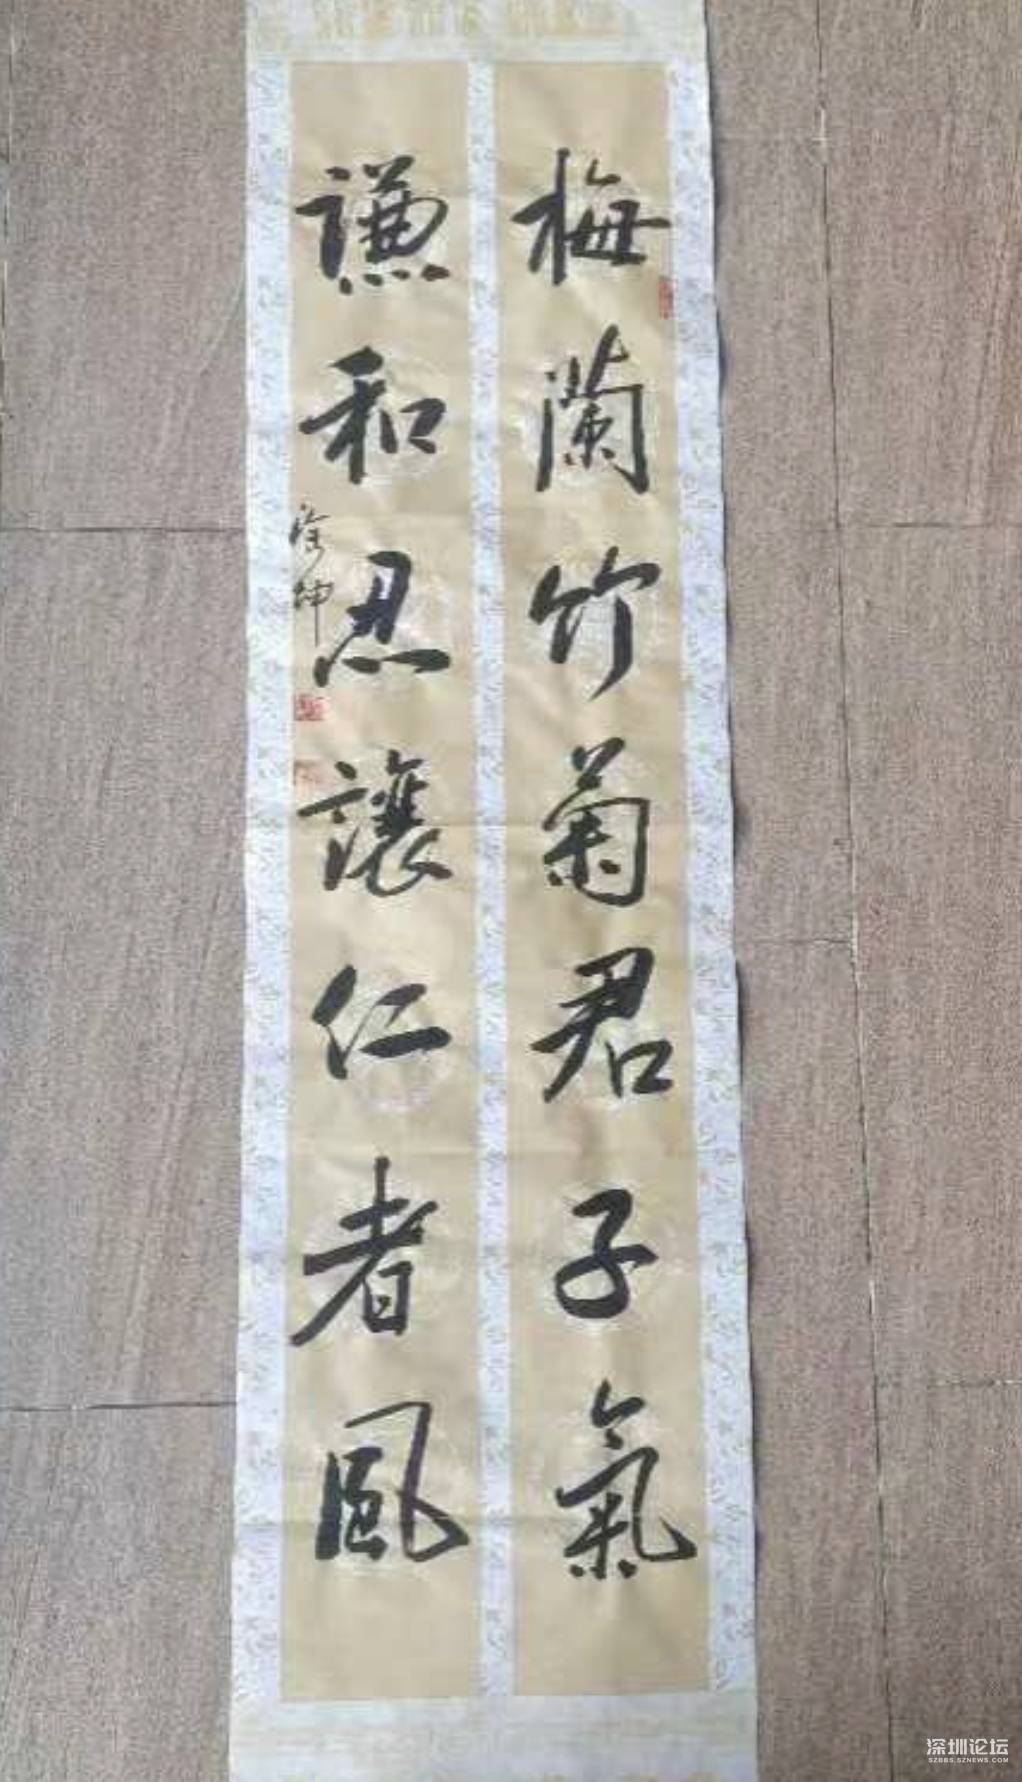 梅蘭竹菊君子氣
謙和忍讓仁者風
徐坤
深圳论坛
SZBBS.SZNEWS.COM